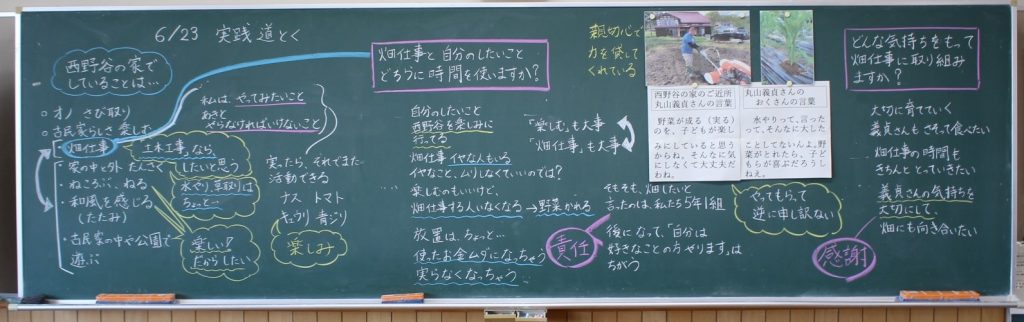 6/23 実践道とく
西野谷の家で
していることは…
オノ さび取り
古民家らしさ 楽しむ
畑仕事
家の中と外 たんさく
ねころぶ、ねる
和風を感じる
(たたみ)
古民家の中や公園で
遊ぶ
土木工事なら、
したいと思う
水やり、草取りは
ちょっと…
楽しい!
だからしたい
私は、やってみたいこと
あきと
やらなければいけないこと
実ったら、それでまた
活動できる
ナス トマト
キュウリ 青ジソ
楽しみ
畑仕事と自分のしたいこと
どちらに時間を使いますか?
自分のしたいこと
西野谷を楽しみに
行ってる
畑仕事 イヤな人もいる
イヤなこと、ムリしなくていいのでは?
楽しむのもいいけど、
畑仕事する人いなくなる→野菜かれる
放置は、ちょっと…
使ったお金ムダになっちゃう
実らなくなっちゃう
「楽しむ」も大事
「畑仕事」も大事
責任
そもそも、畑したいと
言ったのは、私たち5年1組
後になって、「自分は
好きなことの方やります」は
ちがう
親切心で
力を貸して
くれている
西野谷の家のご近所
丸山義貞さんの言葉
野菜が成る(実る)
のを、子どもが楽し
みにしていると思う
からね。そんなに気に
しなくて大丈夫だ
わね。
丸山義貞さんの
おくさんの言葉
水やりって、言った
って、そんなに大した
ことしてないんよ。野
菜がとれたら、子ど
もらが喜ぶだろうし
ねえ。
やってもらって
逆に申し訳ない
どんな気持ちをもって
畑仕事に取り組み
ますか?
大切に育てていく
義貞さんもさそって食べたい
畑仕事の時間も
きちんととっていきたい
義貞さんの気持ちを
大切にして、
畑にも向き合いたい
感謝